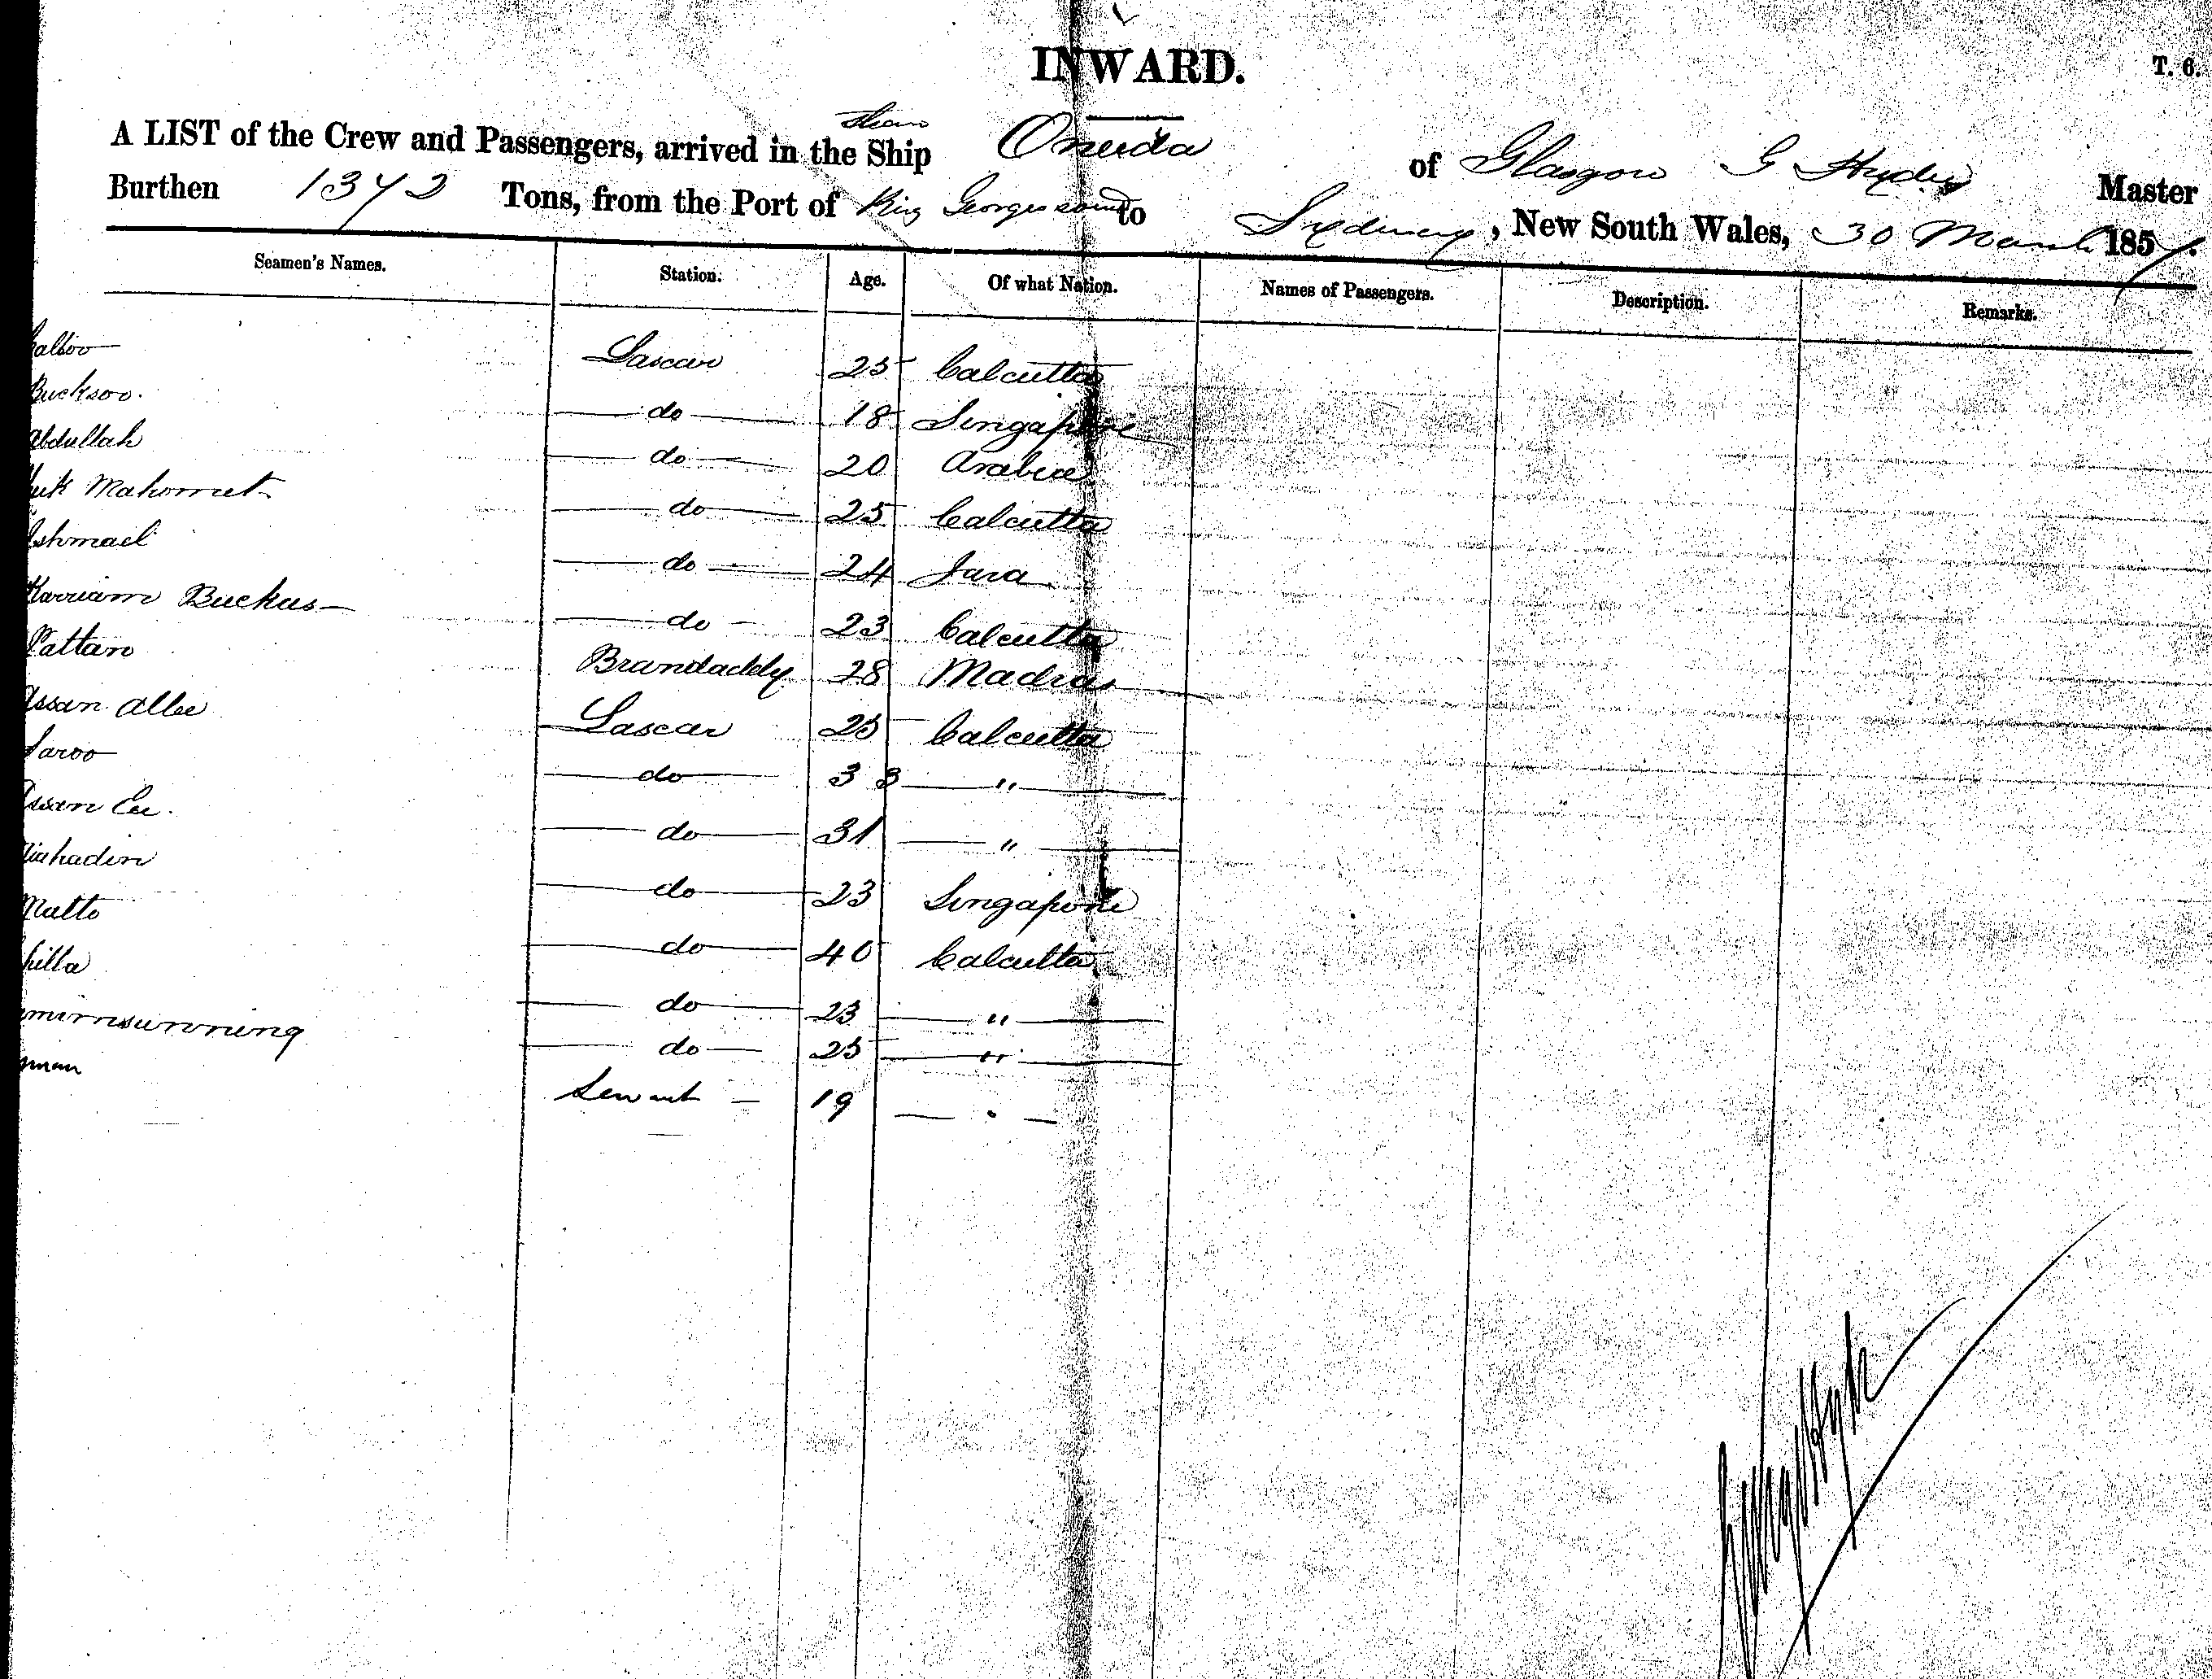 INWARD.
T. 6.
A LIST of the Crew and Passengers, arrived in the Steam Ship Oneida of Glasgow G Hyde Master
Burthen 1372 Tons, from the Port of King Georges Sound to Sydney, New South Wales, 30 March 1857.
Seamen's Names. Station. Age. Of what Nation. Names of Passengers. Description. Remarks.
Lascar 25 Calcutta
Bucksoo. do 18 Singapore
Abdullah do 20 Arabia
Mahomet do 25 Calcutta
Ishmael do 24 Java
Karriam Buckus do 23 Calcutta
Pattan Brandaddy 28 Madras
Assan Allee Lascar 25 Calcutta
Saroo do 33 "
Assan do 31 "
do 23 Singapore
Matto do 40 Calcutta
do 23 "
do 25 "
Servant 19 "